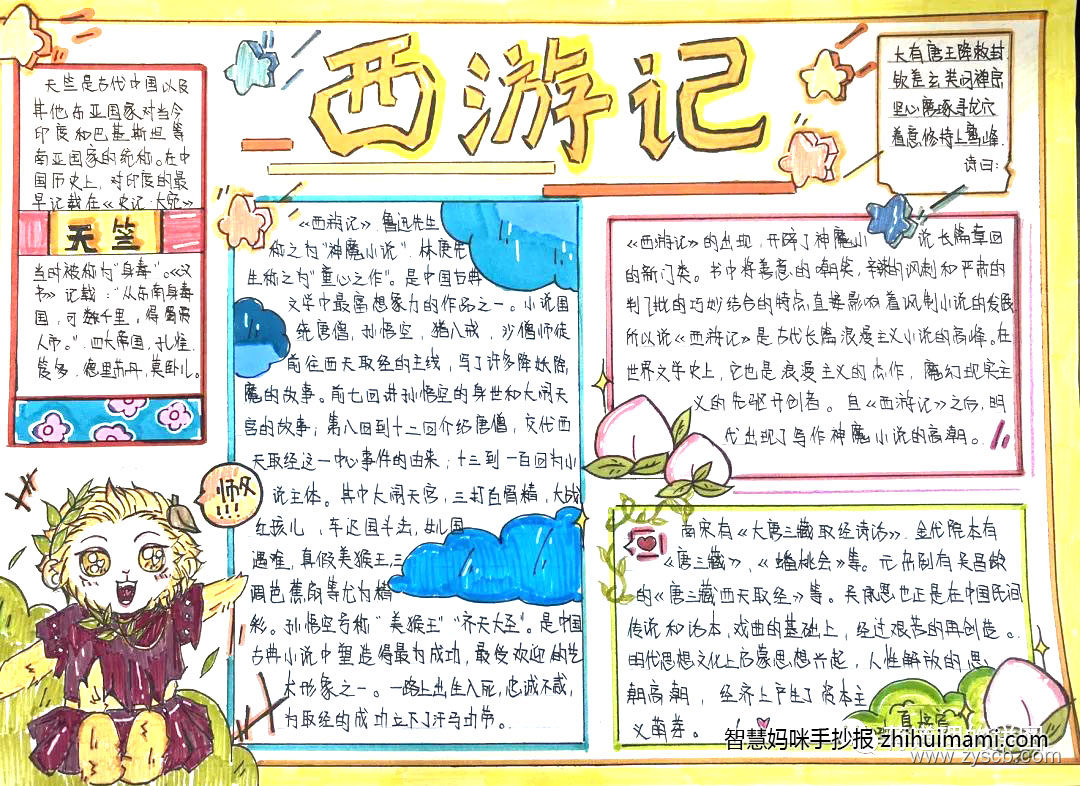 西游记
天竺是古代中国以及
其他东亚国家对当今
印度和巴基斯坦等
南亚国家的统称。在中
国历史上，对印度的最
早记载在《史记·大宛》
天竺
当时被称为"身毒"。《汉
书》记载："从东南身毒
国，可数千里，得蜀贾
人市。".四大帝国，孔雀.
笈多.德里苏丹，莫卧儿。
大有唐王降敕封.
钦差玄奘问禅宗
坚心磨琢寻龙穴
着意修持上鹫峰.
诗曰：
《西游记》鲁迅先生
称之为"神魔小说".林庚先
生称之为"童心之作"。是中国古典
文学中最富想象力的作品之一。小说围
绕唐僧，孙悟空，猪八戒，沙僧师徒
前往西天取经的主线，写了许多降妖除
魔的故事。前七回讲孙悟空的身世和大闹天
宫的故事；第八回到十二回介绍唐僧，交代西
天取经这一中心事件的由来；十三到一百回为小
说主体。其中大闹天宫，三打白骨精，大战
红孩儿，车迟国斗法，女儿国
遇难，真假美猴王，三
调芭蕉扇等尤为精
彩。孙悟空号称"美猴王""齐天大圣"。是中国
古典小说中塑造得最为成功，最受欢迎的艺
术形象之一。一路上出生入死，忠诚不贰，
为取经的成功立下了汗马功劳。
《西游记》的出现，开辟了神魔小说长篇章回
的新门类。书中将善意的嘲笑，辛辣的讽刺和严肃的
判了批的巧妙结合的特点直接影响着讽刺小说的发展
所以说《西游记》是古代长篇浪漫主义小说的高峰。在
世界文学史上，它也是浪漫主义的杰作，魔幻现实主
义的先驱开创者。自《西游记》之后，明
代出现了写作神魔小说的高潮。
师父
!!!
南宋有《大唐三藏取经诗话》.金代院本有
《唐三藏》，《蟠桃会》等。元杂剧有吴昌龄
的《唐三藏西天取经》等。吴承恩也正是在中国民间
传说和话本，戏曲的基础上，经过艰苦的再创造。
明代思想文化上启蒙思想兴起，人性解放的思
潮高潮，经济上产生了资本主
义萌芽。
智慧妈咪手抄报 zhihuimami.com
www.zyscb.com